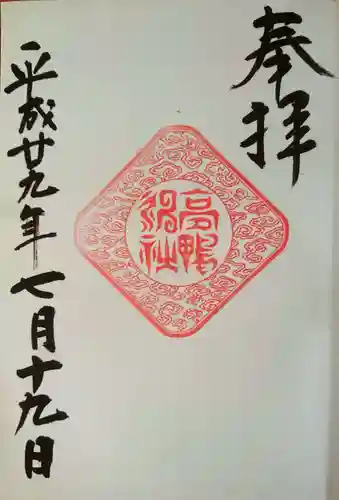 奉拝
高鴨神社
平成廿九年七月十九日